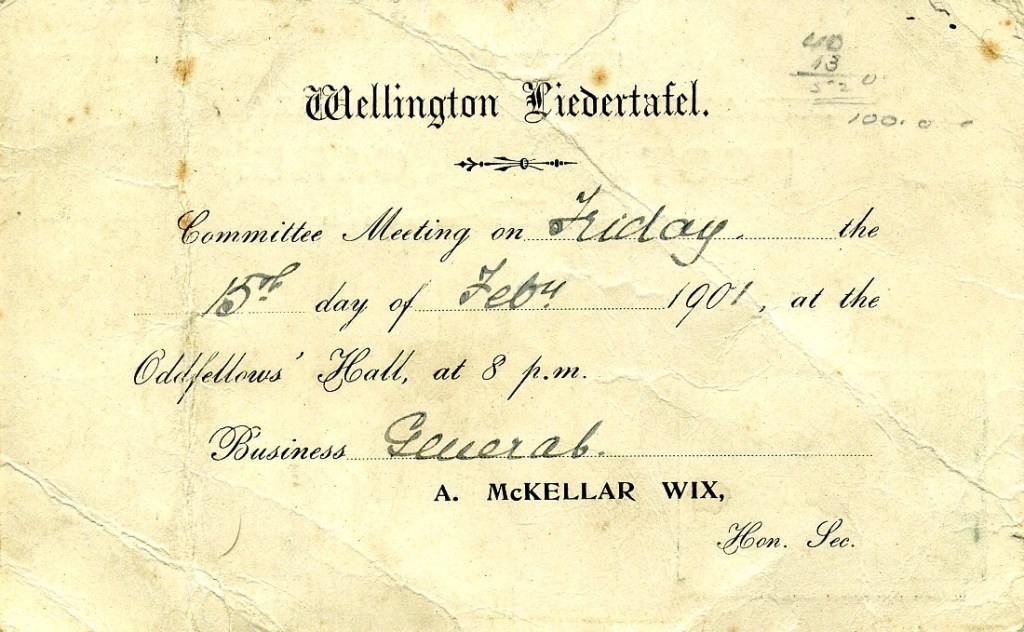 40
13
520
100.0
Wellington Liedertafel.
Committee Meeting on Friday. the
15th day of Feby 1901, at the
Oddfellows' Hall, at 8 p.m.
Business General.
A. McKELLAR WIX,
Hon. Sec.